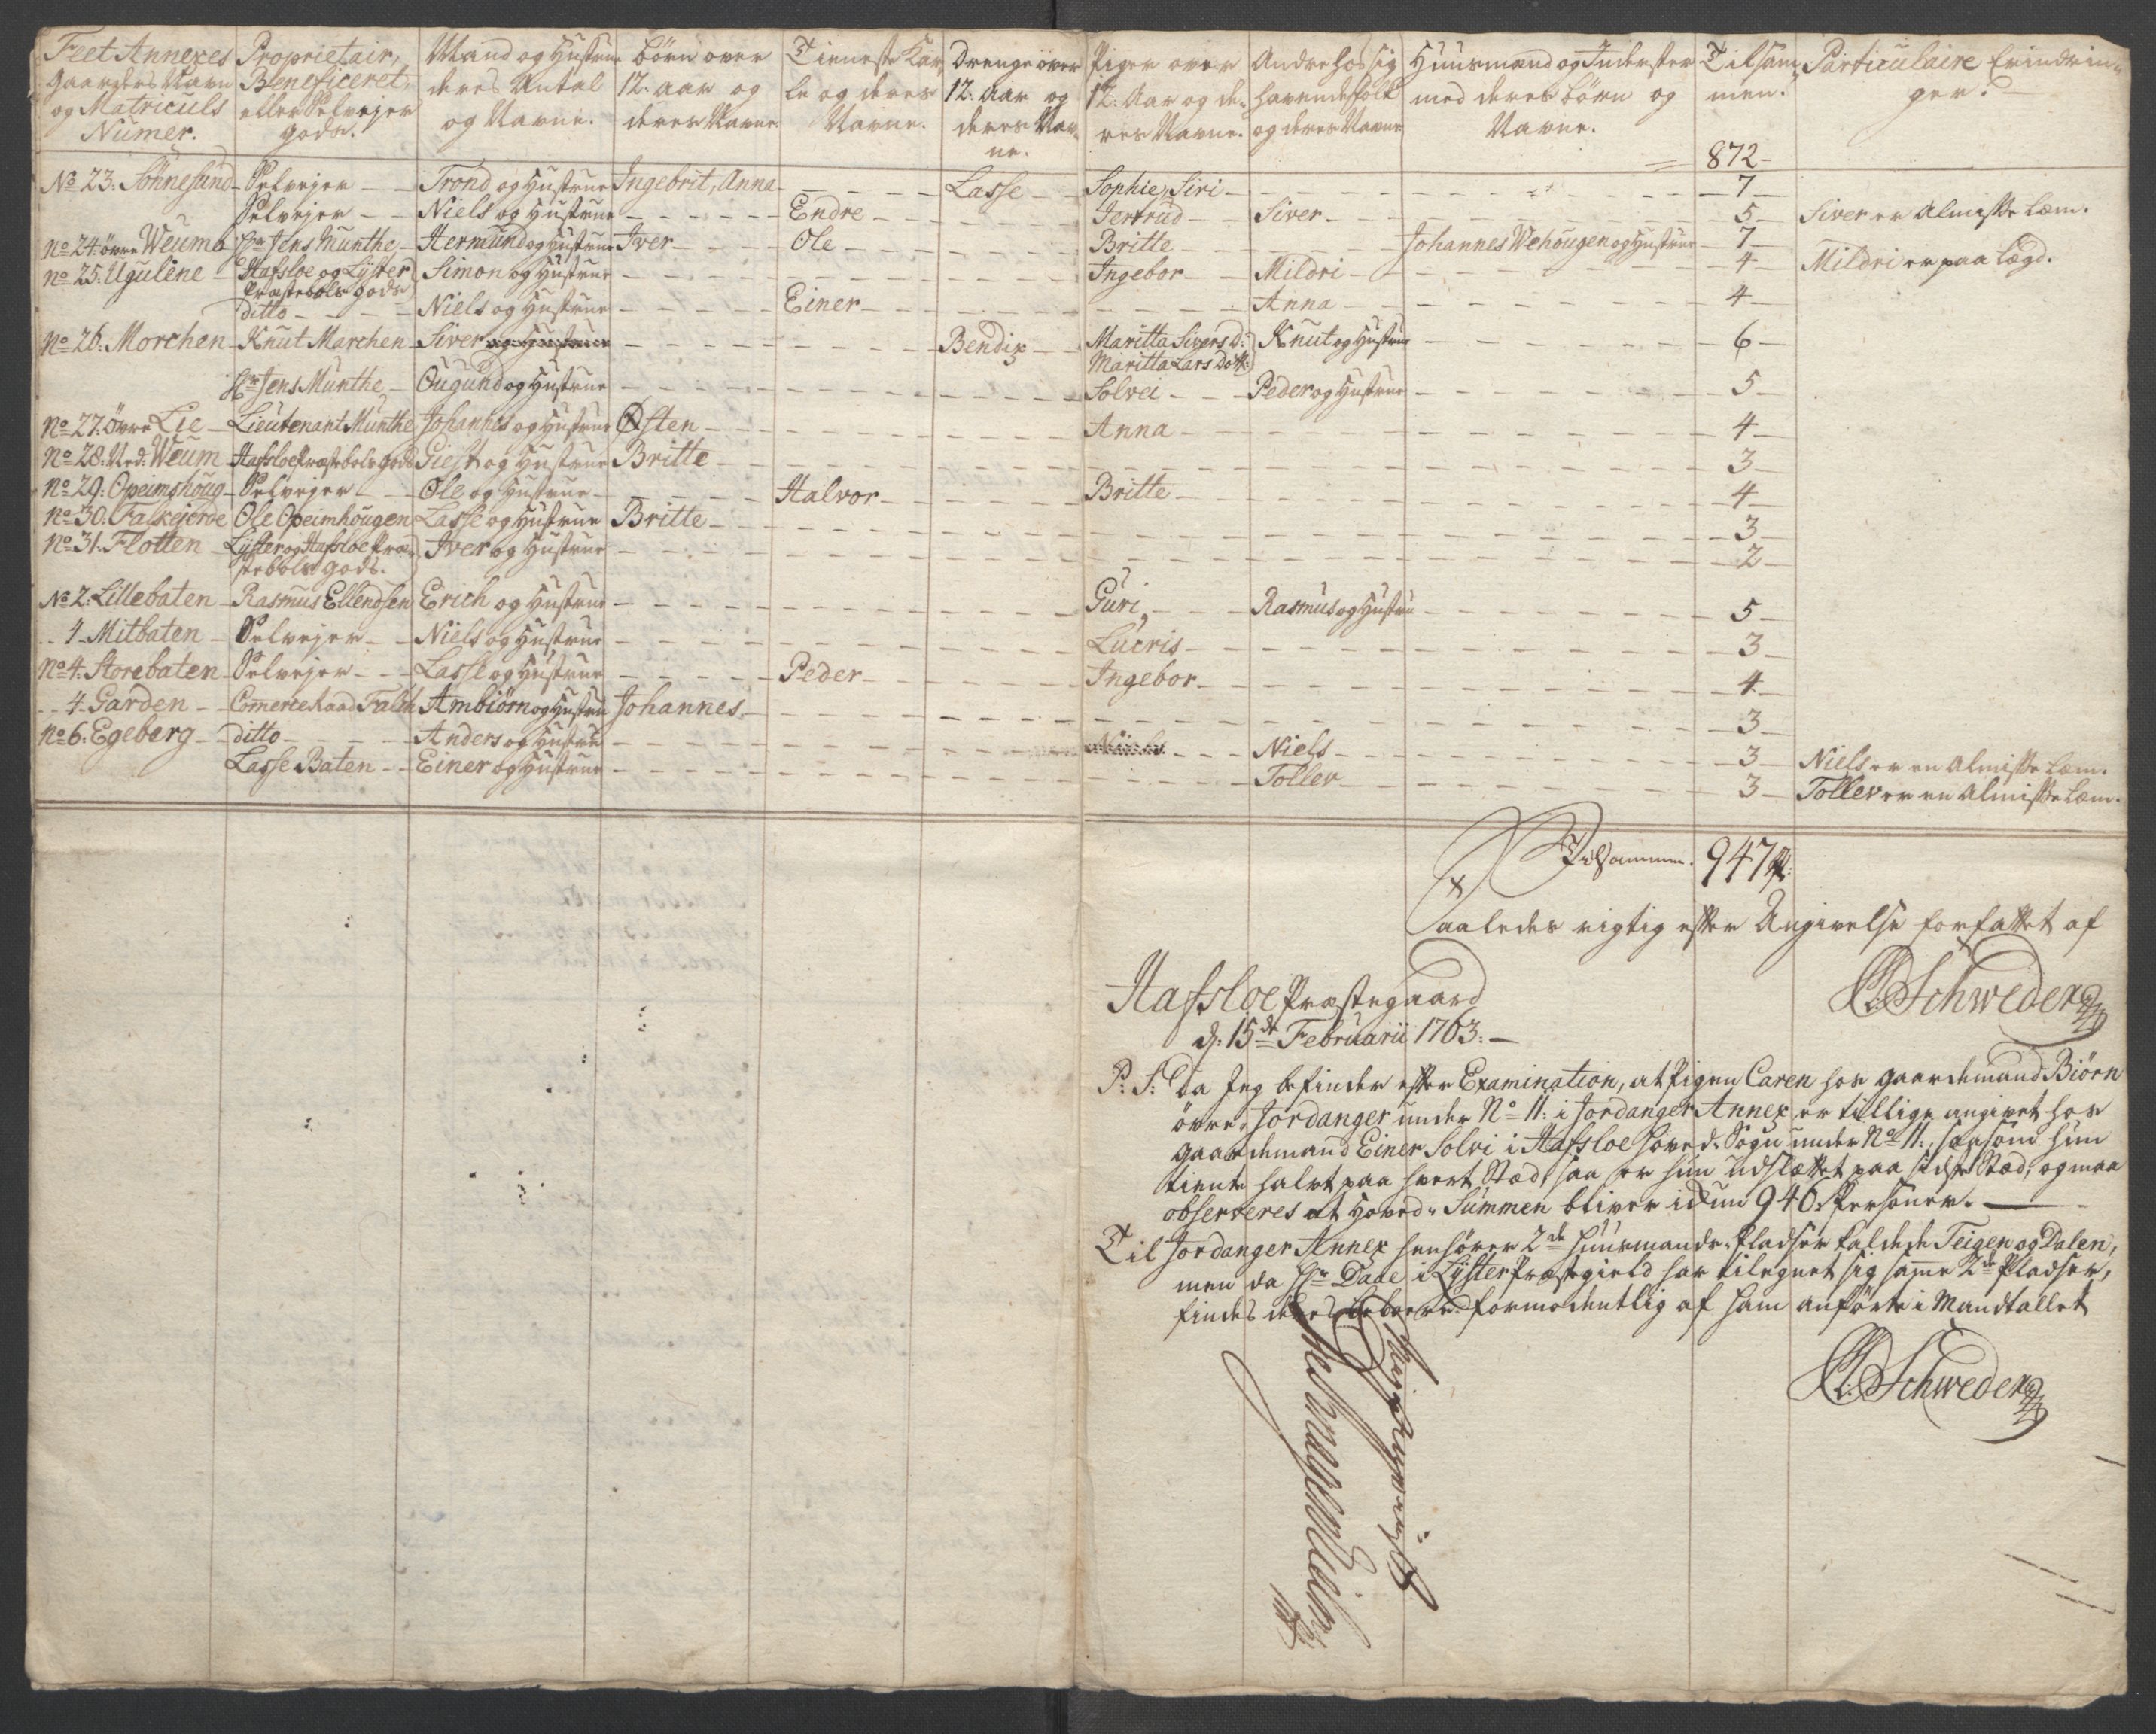 Feet Annexes Proprietair, Mand og Hustrue Börn over Tieneste Kar- Drenge over Piger over Andre hos sig Huusmænd og Inderster Tilsam- Particulaire Erindrin-
Gaarders Navn Beneficeret, deres Antal 12. Aar og le og deres 12. Aar og 12. Aar og de- havende folk med deres Börn og men. ger.
og Matriculs eller Selvejer og Navne. deres Navne. Navne. deres Nav- res Navne. og deres Navne Navne.
Numer. gods. ne.
872
No 23. Sönnesund Selvejer Trond og Hustrue Ingebrit, Anna Lasse Sophie, Siri 7
Selvejer Niels og Hustrue Endre Jertrud Siver 5 Siver er Almisse Lem.
No 24. övre Weum Hr Jens Munthe Hermund og Hustrue Iver Ole Britte Johannes Wehougen og Hustrue 7
No 25. Ugulene Hafsloe og Lyster Simon og Hustrue Ingebor Mildri 4 Mildri er paa Lægd.
Præstebols gods
ditto Niels og Hustrue Einer Anna 4
No 26. Morchen Knut Marchen Siver og Hustrue Bendix Maritta Sivers D: Knut og Hustrue 6
Maritta Lars Dott:
Hr Jens Munthe Ougund og Hustrue Solvei Peder og Hustrue 5
No 27. Övre Lie Lieutenant Munthe Johannes og Hustrue Østen Anna 4
No 28. Ned. Weum Hafsloe Præstebols gods Giest og Hustrue Britte 3
No 29. Opeimshoug Selvejer Ole og Hustrue Halvor Britte 4
No 30. Falkejorde Ole Opeimhougen Lasse og Hustrue Britte 3
No 31. Flotten Lyster og Hafsloe Præ- Iver og Hustrue 2
stebols gods.
No 2. Lillebaten Rasmus Ellendsen Erich og Hustrue Guri, Rasmus og Hustru 5
4 Mitbaten Selvejer Niels og Hustrue Lucris 3
No 4. Storebaten Selvejer Lasse og Hustrue Peder Ingebor 4
4 Garden Comerce Raad Falch Ambiörn og Hustru Johannes 3
No 6. Egeberg ditto Anders og Hustru Niels Niels 3 Niels er en Almisse Lem.
Lasse Baten Einer og Hustrue Tollev 3 Tollev er en Almisse Lem.
Tilsammen. 947
Saaledes rigtig efter Angivelse forfattet af
Schweder
Hafsloe Præstegaard
d. 15de Februarii 1763.
P: S: Da Jeg befinder efter Examination, at Pigen Caren hos Gaardemand Biörn
övre Jordanger under No 11: i Jordanger Annex er tillige angivet hos
Gaardemand Einer Solvi i Hafsloe Hoved-Sogn under No 11:, saasom hun
tiente halvt paa hvert Stæd, saa er hun udslættet paa sidste Stæd, og maa
observeres at Hoved-Summen bliver ickun 946 Personer.
Til Jordanger Annex henhörer 2de Huusmands-Pladser kaldede Teigen og Dalen,
men da Hr Daae i Lyster Præstegield har tilegnet sig samme 2de Pladser,
findes deres beboere formodentlig af ham anförte i Mandtallet
Schweder